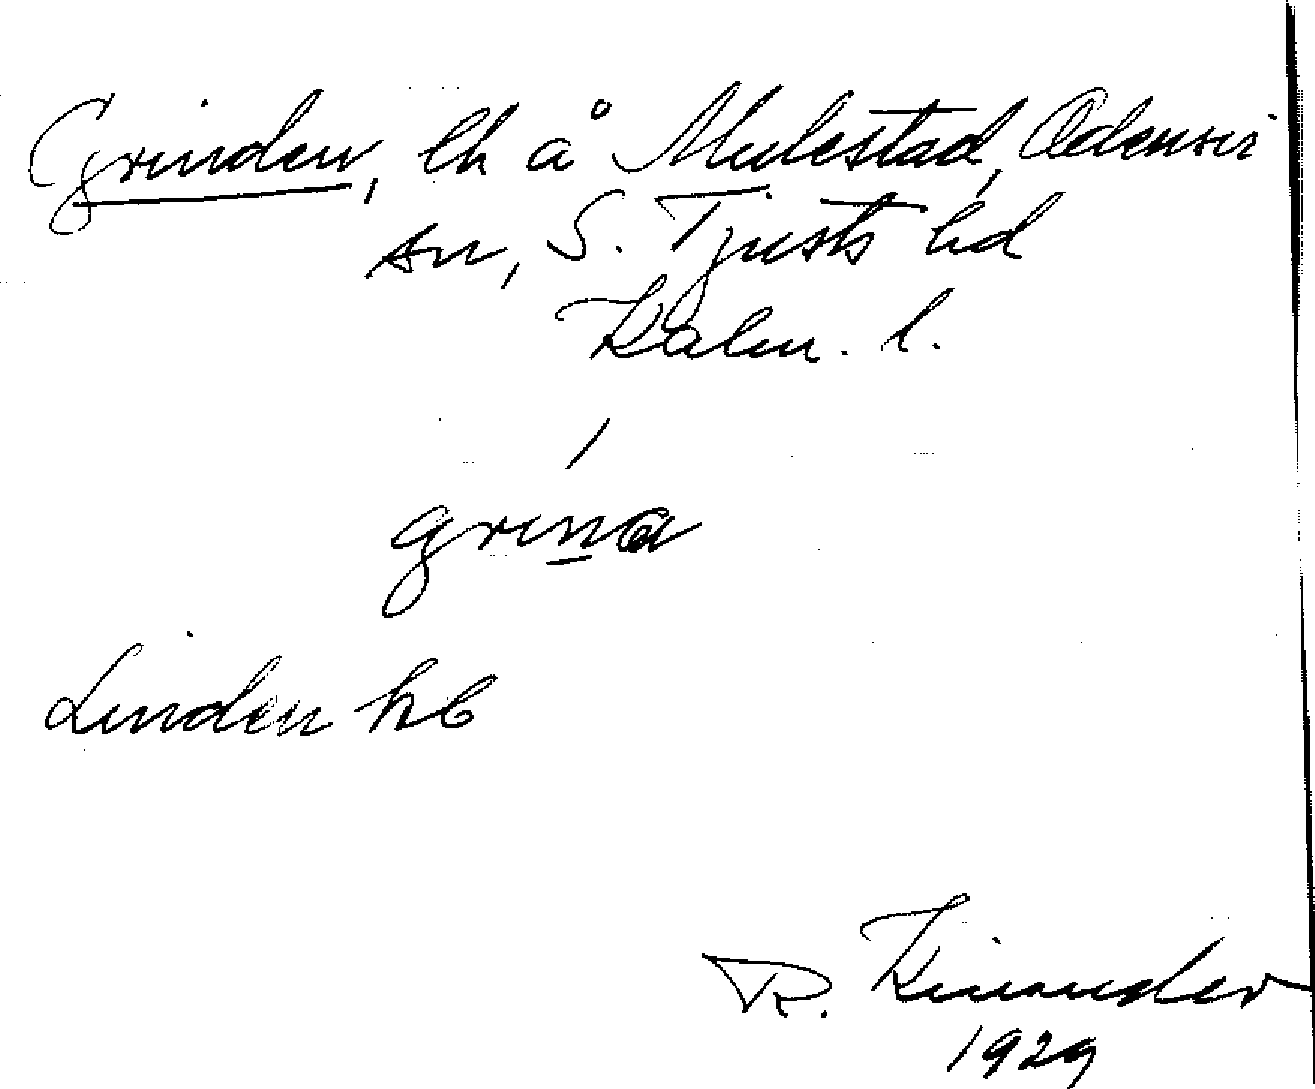 Grinden, lh å Mulestad, Odensvi
sn, S. Tjusts hd
Kalm. l.
grina
Linden hb
R. Kinander
1929